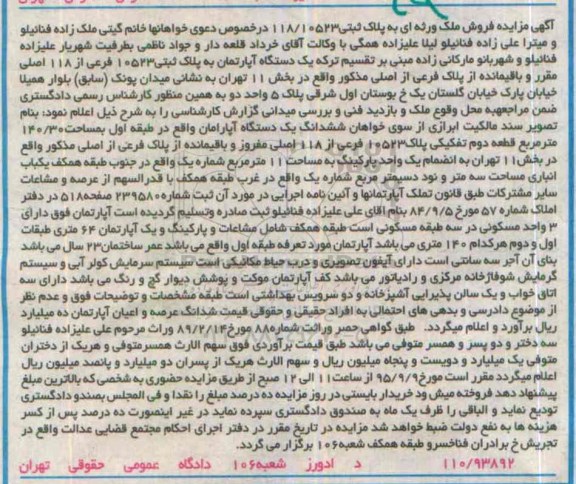 آگهی مزایده فروش ملک ورثه ای به پلاک ثبتی۱۱۸/۱۰۵۲۳ درخصوص دعوی خواهانها خانم گیتی ملک زاده فنائیلو
و میترا علی زاده فنائیلو لیلا علیزاده همگی با وکالت آقای خرداد قلعه دار و جواد ناظمی بطرفیت شهریار علیزاده
فنائیلو و شهربانو مارکانی زاده مبنی بر تقسیم ترکه یک دستگاه آپارتمان به پلاک ثبتی۱۰۵۲۳ فرعی از ۱۱۸ اصلی
مقرر و باقیمانده از پلاک فرعی از اصلی مذکور واقع در بخش ۱۱ تهران به نشانی میدان پونک (سابق) بلوار همیلا
خیابان پارک خیابان گلستان یک خ بوستان اول شرقی پلاک ۵ واحد دو به همین منظور کارشناس رسمی دادگستری
ضمن مراجعهبه محل وقوع ملک و بازدید فنی و بررسی میدانی گزارش کارشناسی را به شرح ذیل اعلام نمود: بنام
تصویر سند مالکیت ابرازی از سوی خواهان ششدانگ یک دستگاه آپارامان واقع در طبقه اول بمساحت۱۴۰/۳۰
مترمربع قطعه دوم تفکیکی پلاک۱۰۵۲۳ فرعی از ۱۱۸ اصلی مفروز و باقیمانده از پلاک فرعی از اصلی مذکور واقع
در بخش۱۱ تهران به انضمام یک واحد پارکینگ به مساحت ۱۱ مترمربع شماره یک واقع در جنوب طبقه همکف یکباب
انباری مساحت سه متر و نود دسیمتر مربع شماره یک واقع در غرب طبقه همکف با قدرالسهم از عرصه و مشاعات
سایر مشترکات طبق قانون تملک آپارتمانها و آئین نامه اجرایی در مورد آن ثبت شماره۲۳۹۵۸۰ صفحه۵۱۸ در دفتر
املاک شماره ۵۷ مورخ ۸۴/۹/۵ بنام اقای علی علیزاده فنائیلو ثبت صادره وتسلیم گردیده است آپارتمان فوق دارای
۳ واحد مسکونی در سه طبقه مسکونی است طبقه همکف شامل مشاعات و پارکینگ و یک آپارتمان ۶۴ متری طبقات
اول و دوم هرکدام ۱۴۰ متری می باشد آپارتمان مورد تعرفه طبقه اول واقع می باشد عمر ساختمان۲۳ سال می باشد
بنای آن آجر سه سانتی است دارای آیفون تصویری و درب حیاط مکانیکی است سیستم سرمایش کولر آبی و سیستم
گرمایش شوفاژخانه مرکزی و رادیاتور می باشد کف آپارتمان موکت و پوشش دیوار گچ و رنگ می باشد دارای سه
اتاق خواب و یک سالن پذیرایی آشپزخانه و دو سرویس بهداشتی است طبقه مشخصات و توضیحات فوق و عدم نظر
از موضوع دادرسی و بدهی های احتمالی به افراد حقیقی و حقوقی قیمت شدانگ عرصه و اعیان آپارتمان ده میلیارد
ریال برآورد و اعلام میگردد. طبق گواهی حصر وراثت شماره۸۸ مورخ۸۹/۲/۱۴ وراث مرحوم علی علیزاده فنائیلو
سه دختر و دو پسر و همسر متوفی می باشد طبق قیمت برآوردی فوق سهم الارث همسرمتوفی و هریک از دختران
متوفی یک میلیارد و دویست و پنجاه میلیون ریال و سهم الارث هریک از پسران دو میلیارد و پانصد میلیون ریال
اعلام میگردد مقرر است مورخ۹۵/۹/۹ از ساعت۱۱ الی ۱۲ صبح از طریق مزایده حضوری به شخصی که بالاترین مبلغ
پیشنهاد دهد فروخته میش ود خریدار بایستی در روز مزایده ده درصد مبلغ را نقدا و فی المجلس بصندو دادگستری
تودیع نماید و الباقی را ظرف یک ماه به صندوق دادگستری سپرده نماید در غیر اینصورت ده درصد پس از کسر
هزینه ها به نفع دولت ضبط خواهد شد مزایده در تاریخ مقرر در دفتر اجرای احکام مجتمع قضایی عدالت واقع در
تجریش خ برادران فناخسرو طبقه همکف شعبه۱۰۶ برگزار می گردد.
۱۱۰/۹۳۸۹۲ د ادورز شعبه۱۰۶ دادگاه عمومی حقوقی تهران